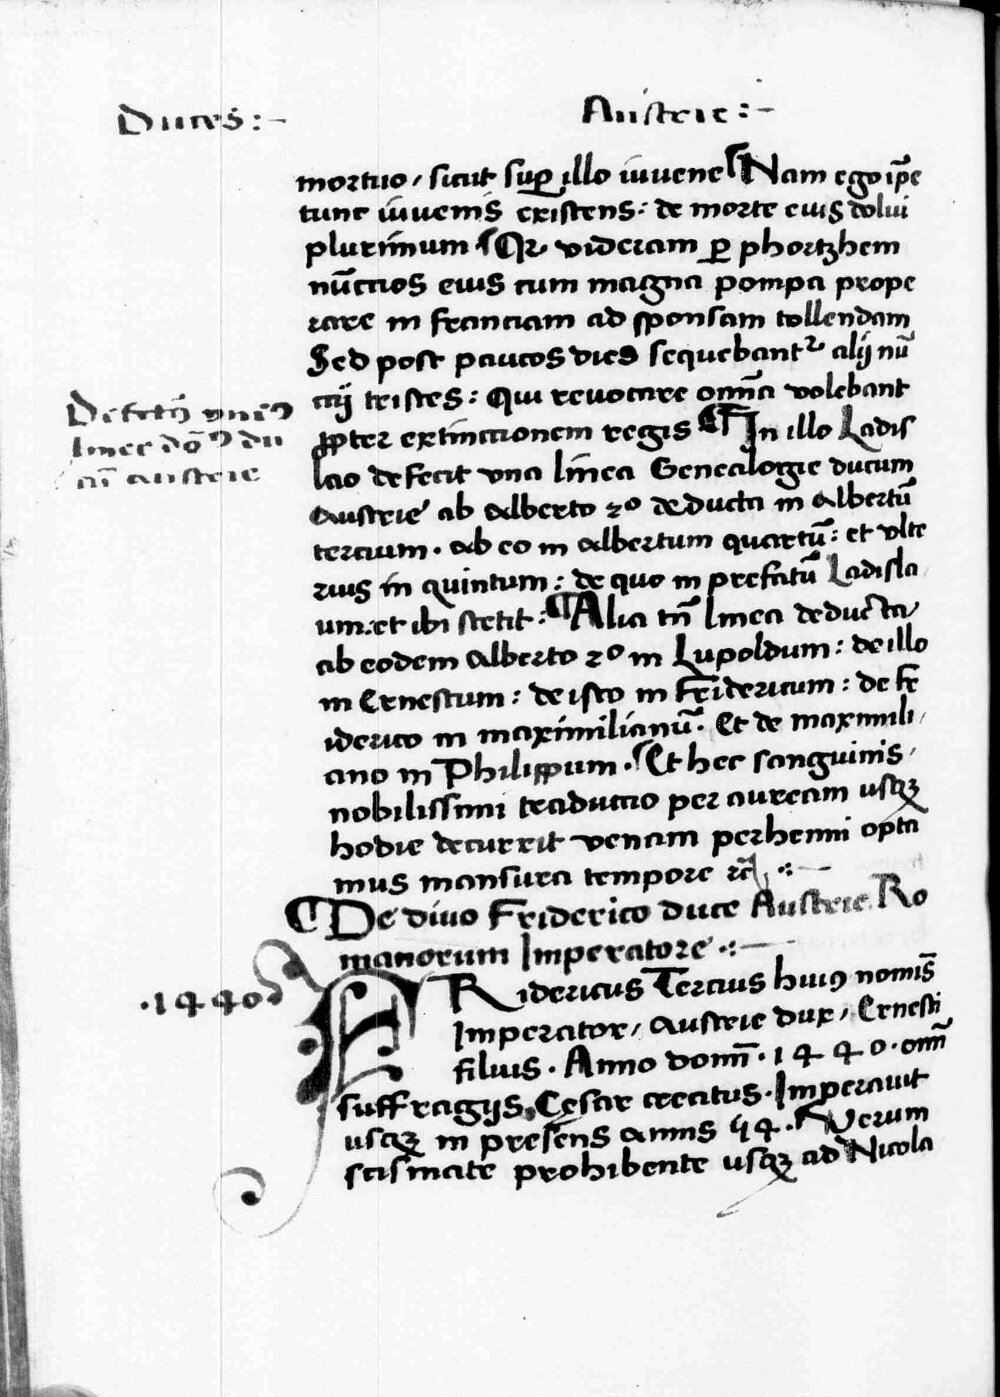 Duces :-
Austrie :-
mortuo / sicut suꝑ illo iuvene ¶ Nam ego ip̃e
tunc iuvenis existens : de morte eius dolui
plurimum ¶ Qꝛ videram ꝑ phortzhem
nũctios eius cum magna pompa prope
rare in franciam ad sponsam tollendam
Sed post paucos dies sequebantᷣ alij nũ
cij tristes : Qui revocare om̃ia volebant
ꝓpter extinctionem regis ¶ In illo Ladis
Defectꝰ unius
linee
du
cũ austrie
lao defecit una linea Genealogie ducum
Austrie ab Alberto 2o deducta in Albertũ
tercium . ab eo in Albertum quartũ : et ulte
rius in quintum : de quo in prefatũ Ladisla
um : et ibi stetit : ¶ Alia tñ linea deducta
ab eodem Alberto 2o in Lupoldum : de illo
in Ernestum : de isto in Fridericum : de fr
iderico in maximilianũ . Et de maximili
ano in Philippum . ¶ Et hec sanguinis
nobilissimi traductio per auream usqꝫ
hodie decurrit venam perhenni opta
mus mansura tempore ⁊c̃ :-
¶ De divo Friderico duce Austrie Ro
manorum Imperatore :-
.1440.
FRidericus Tercius huiꝰ nomis̃
Imperator / Austrie dux / Ernesti
filius . Anno domĩ . 1440 . om̃
suffragijs Cesar creatus . Imperavit
usqꝫ in presens annis 54 . Verum
scismate prohibente usqꝫ ad Nicola